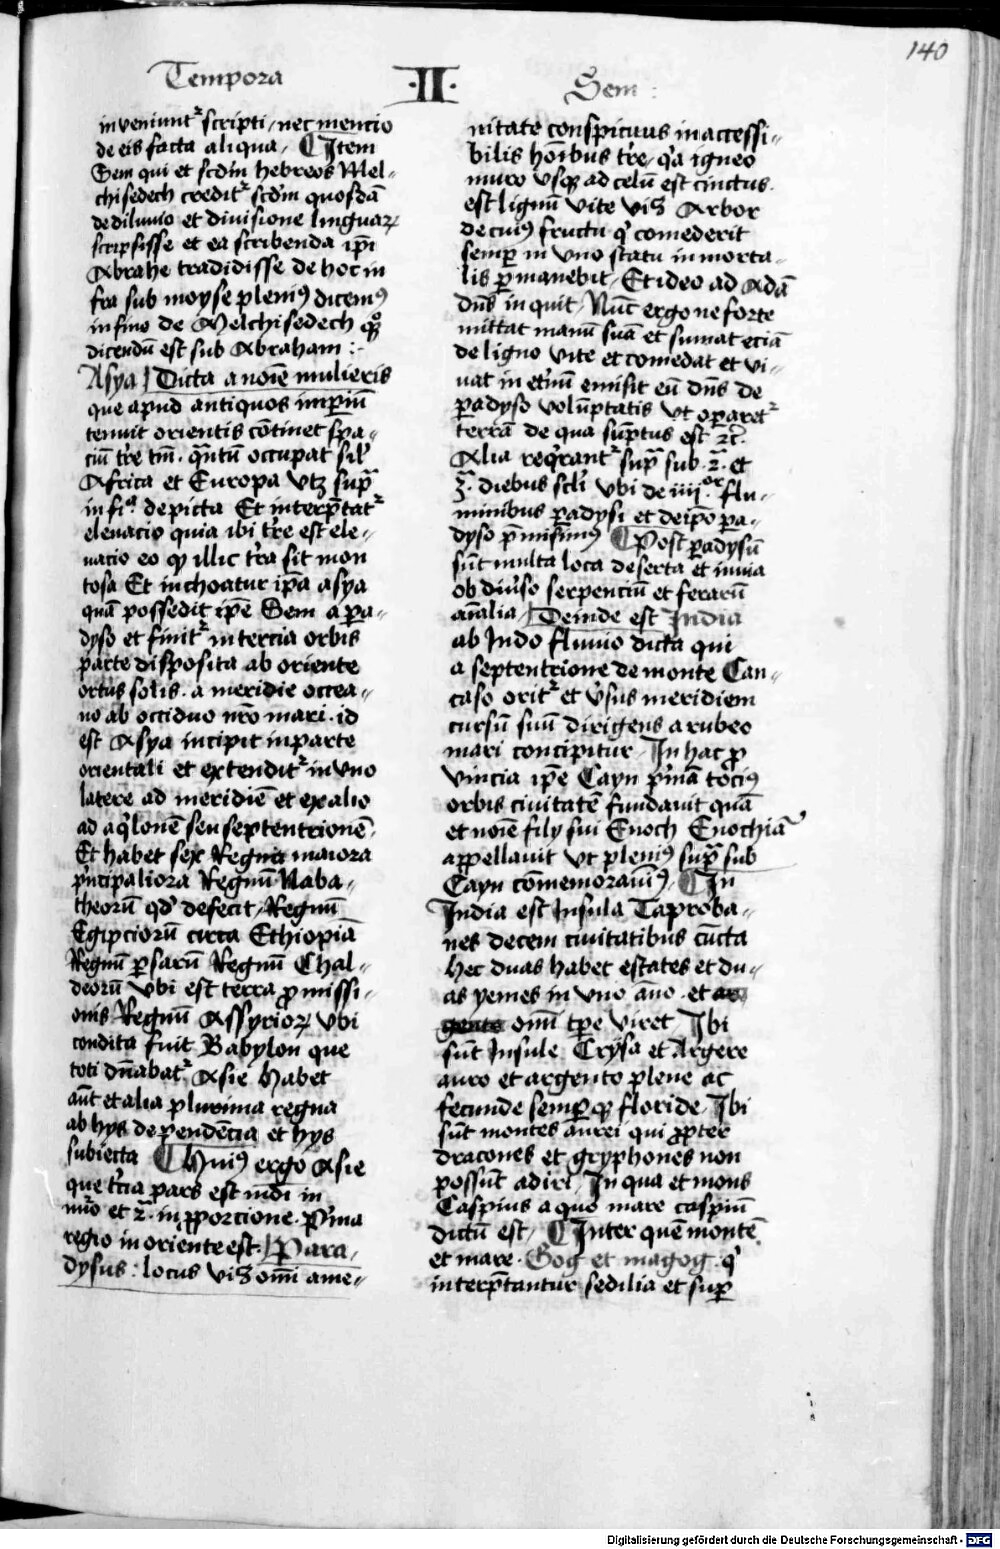 140
Tempora ·II· Sem :
inveniunt᷑ scripti / nec mencio
de eis facta aliqua / ¶ Item
Sem qui et scdm̄ hebreos Mel-
chisedech credit᷑ scdm̄ quosdā
de diluvio et divisione linguaꝝ
scripsisse et ea scribenda ip̄i
Abrahe tradidisse de hoc in
fra sub moyse pleniꝰ dicemꝰ
in fine de Melchisedech
dicendū est sub Abraham :·
Asya / Dicta a noīe mulieris
que apud antiquos imperiū
tenuit orientis cōtinet spa-
ciū tr̄e tm̄ . quātū occupat sil̄
Affrica et Europa vtꝫ supᷓ
in fiᵃ. depicta Et interp̄tat᷑
elevacio quia ibi tr̄e est ele-
vacio eo ꝙ illic tr̄a sit mon
tosa Et inchoatur ip̄a asya
quā possedit ip̄e Sem a pa-
dyso et finit᷑ in tercia orbis
parte disposita ab oriente
ortus solis . a meridie occea-
no ab occiduo nr̄o mari . id
est Asya incipit in parte
orientali et extendit᷑ in vno
latere ad meridiē et ex alio
ad aq̇lonē seu septentrionē .
Et habet sex Regna maiora
pͥncipaliora Regnū Naba-
theorū qd̓ defecit / Regnū
Egipciorū circa Ethiopiā
Regnū ꝑsarū Regnū Chal-
deorū vbi est terra ꝓmissi-
onis Regnū Assyrioꝝ vbi
condita fuit Babylon que
toti dn̄abat᷑ Asie habet
aūt et alia plurima regna
ab hys dependēcia et hys
subiecta ¶ Huiꝰ ergo Asie
que tͥcia pars est mūdi in
nūo et 2. in ꝓporcione . Pͥma
regio in oriente est . / Para-
dysus : locus viꝫ om̄i ame-
nitate conspicuus in accessi-
bilis hoībus tr̄e / qͥa igneo
muro vsqꝫ ad celū est cinctus .
est lignū vite viꝫ Arbor
de cuiꝰ fructu qͥ comederit
semꝑ in vno statu in morta-
lis ꝑmanebit / Et ideo ad Adā
dn̄s inquit / Nūc ergo ne forte
mittat manū suā et sumat eciā
de ligno vite et comedat et vi-
vat in etͥnū emisit eū dn̄s de
ꝑadyso volūptatis vt oꝑaret᷑
terrā de qua sūptus est ⁊c̄ .
Alia reqͥrant᷑ supᷓ sub . 2. et
3. diebus scl̄i vbi de iiiiᵒʳ flu-
minibus ꝑadysi et de ip̄o pa-
dyso p̄misimꝰ ¶ Post ꝑadysū
sūt multa loca deserta et invia
ob diu̓so serpenciū et ferarū
aīalia / Deinde est India
ab Indo fluvio dicta qui
a septentrione de monte Cau-
caso orit᷑ et v̓sus meridiem
cursū suū dirigens a rubeo
mari concipitur / In hac ꝓ
vincia ip̄e Cayn pͥmā tociꝰ
orbis civitatē fundavit quā
et noīe fily sui Enoch Enochiā
appellavit vt pleniꝰ supᷓ sub
Cayn cōmemoravimꝰ / ¶ In
India est Insula Taproba-
nes decem civitatibus cūcta
hec duas habet estates et du-
as yemes in vno āno . et
om̄i tp̄e viret / Ibi
sūt Insule Crysa et Argere
auro et argento plene ac
fecunde semꝑqꝫ floride / Ibi
sūt montes aurei qui ꝓpter
dracones et gryphones non
possūt adiri / In qua et mons
Caspius a quo mare caspiū
dictū est / ¶ Inter quē montē
et mare . Gog et magog . qͥ
interp̄tantur sedilia et suꝑ
Digitalisierung gefördert durch die Deutsche Forschungsgemeinschaft - DFG